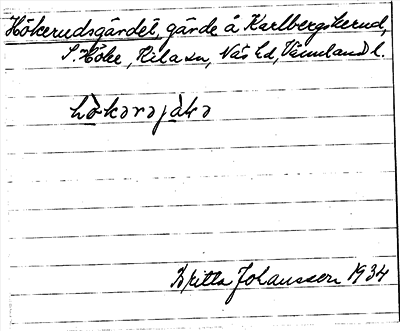 Hökerudsgärdet, gärde å Karlbergskerud,
S. Höke, Kila sn, Näs hd, Värmland l.
Britta Johansson 1934